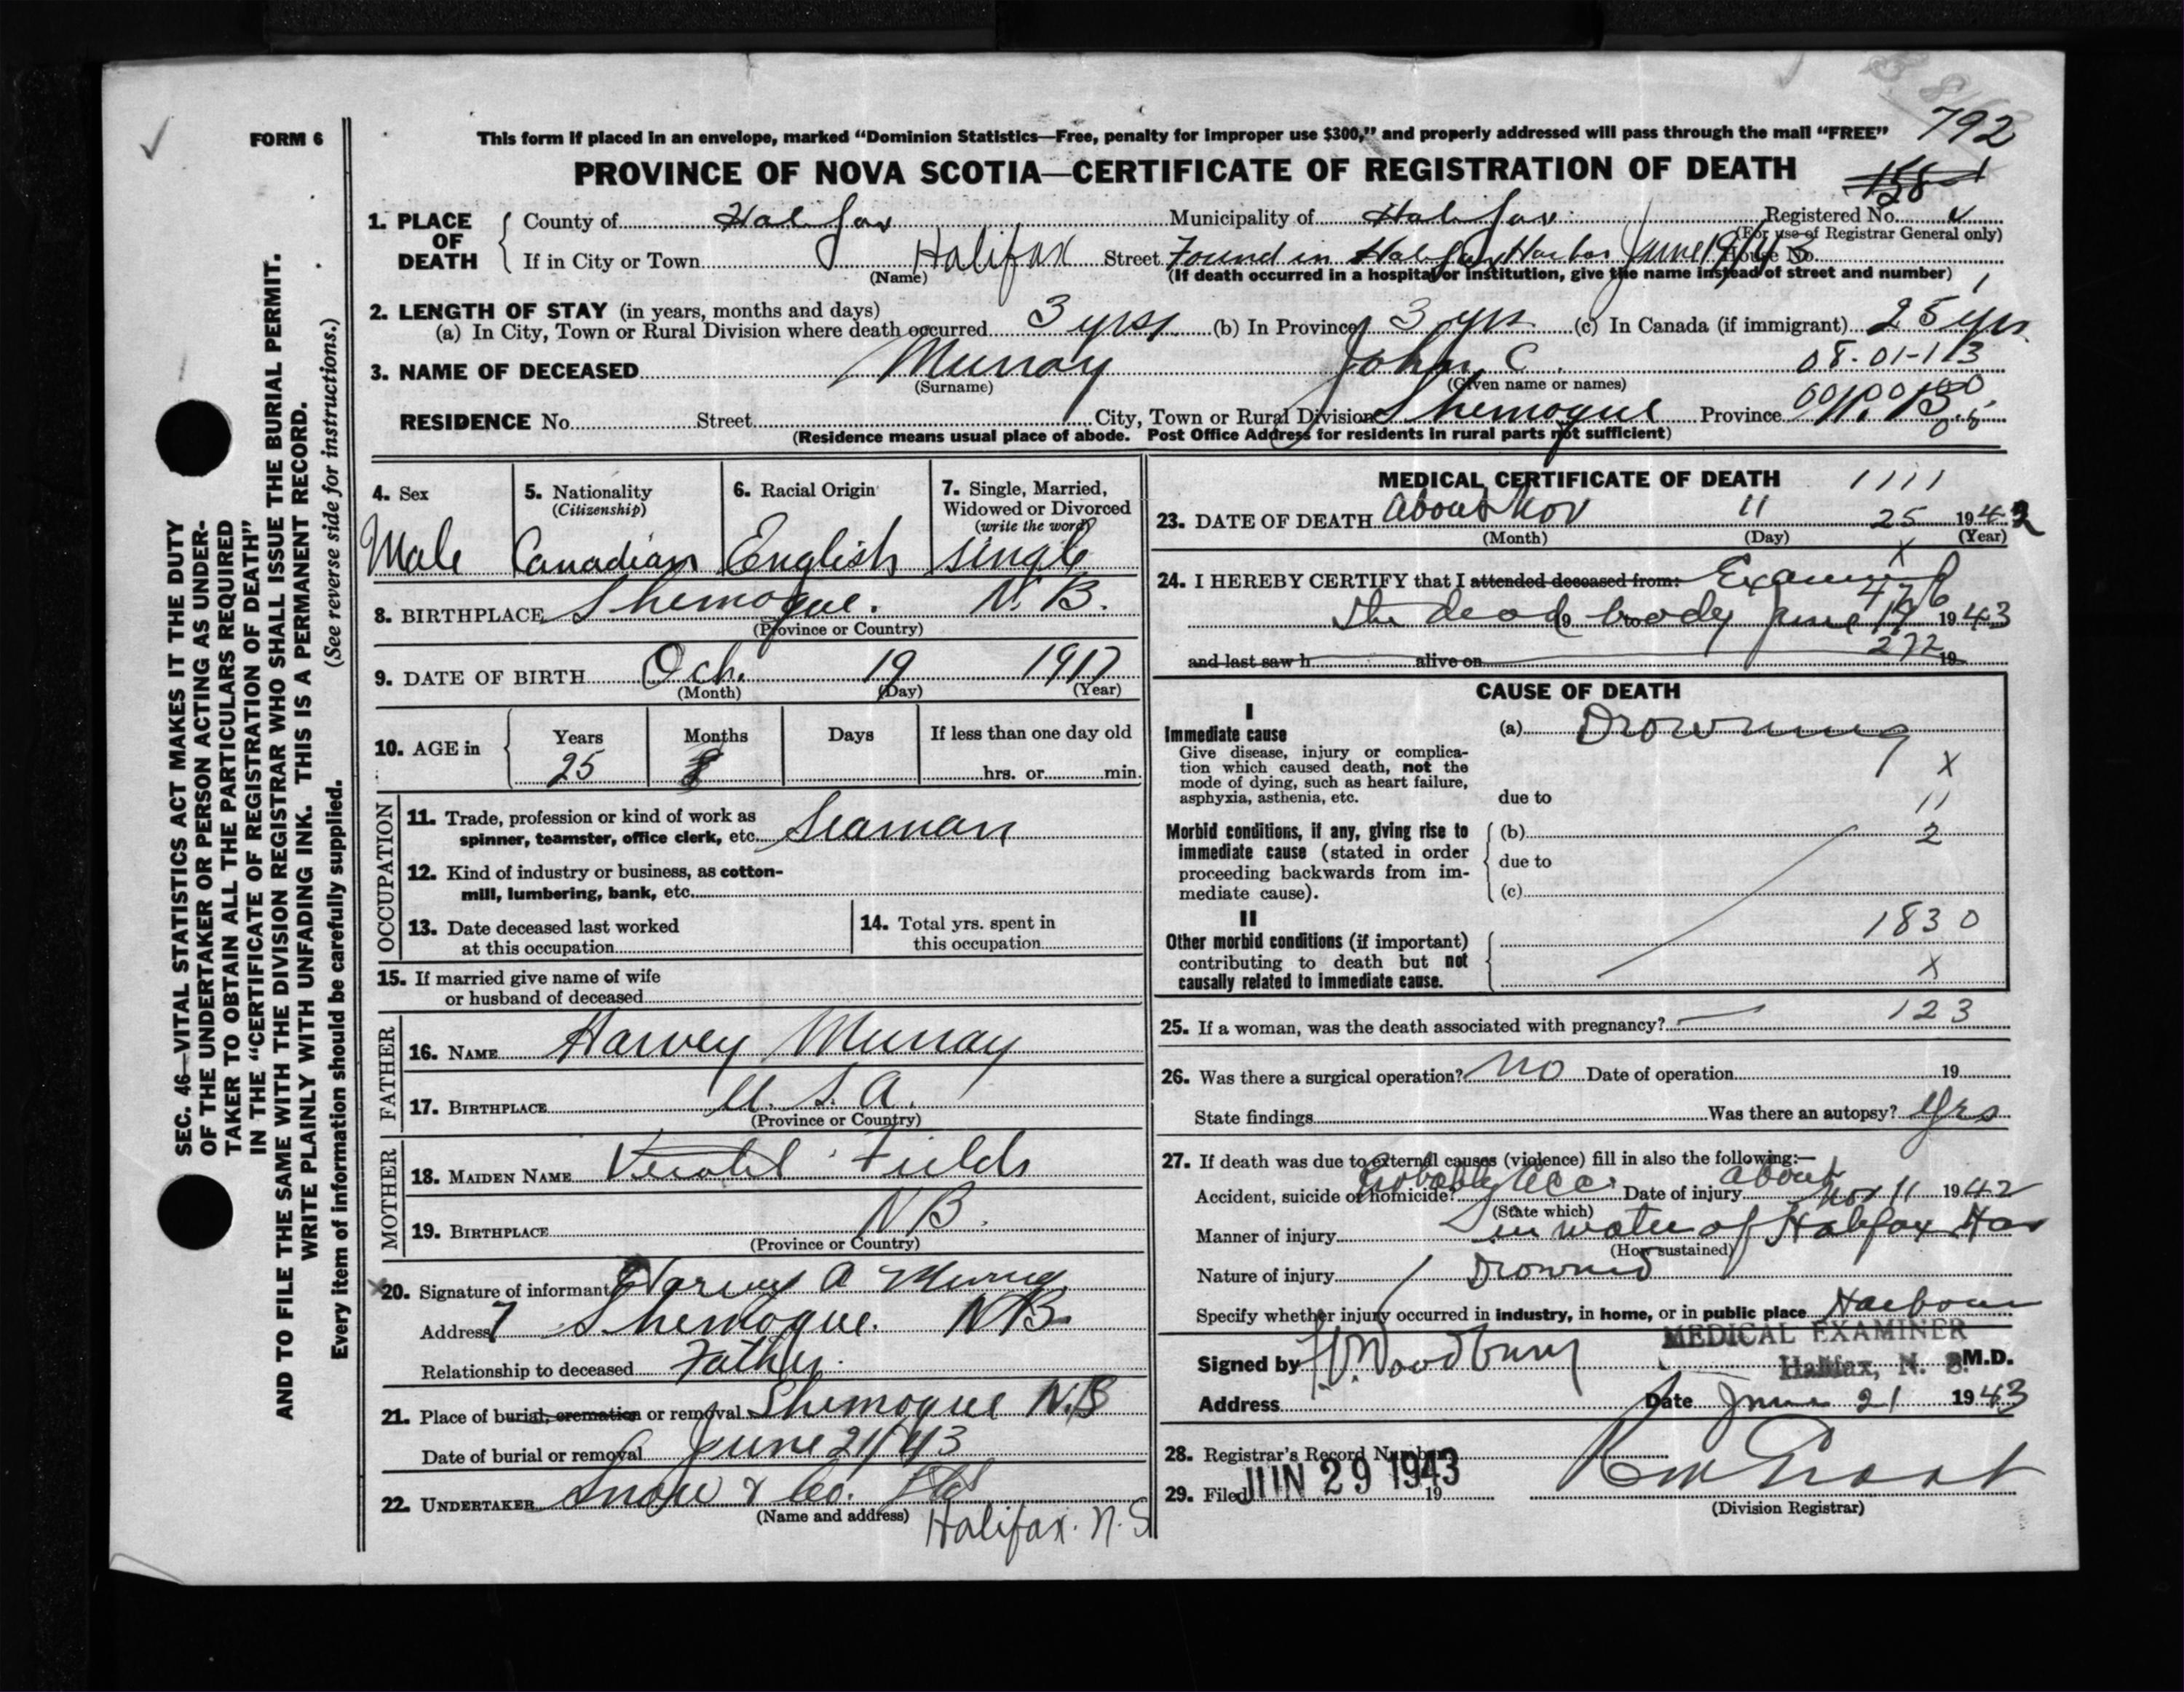 792
FORM 6
This form if placed in an envelope, marked “Dominion Statistics—Free, penalty for improper use $300,” and properly addressed will pass through the mail “FREE”
PROVINCE OF NOVA SCOTIA—CERTIFICATE OF REGISTRATION OF DEATH
158
1. PLACE OF DEATH
County of Halifax Municipality of Halifax Registered No.
(For use of Registrar General only)
If in City or Town Halifax Street Found in Halifax Harbor June 19/43 House No.
(Name) (If death occurred in a hospital or institution, give the name instead of street and number)
2. LENGTH OF STAY (in years, months and days)
(a) In City, Town or Rural Division where death occurred 3 yrs (b) In Province 3 yrs (c) In Canada (if immigrant) 25 yrs
3. NAME OF DECEASED Murray John C. 08-01-113
(Surname) (Given name or names)
RESIDENCE No. Street City, Town or Rural Division Shemogue Province N.B.
(Residence means usual place of abode. Post Office Address for residents in rural parts not sufficient)
4. Sex
Male
5. Nationality
(Citizenship)
Canadian
6. Racial Origin
English
7. Single, Married,
Widowed or Divorced
(write the word)
single
8. BIRTHPLACE Shemogue. N.B.
(Province or Country)
9. DATE OF BIRTH Oct. 19 1917
(Month) (Day) (Year)
10. AGE in Years Months Days If less than one day old
25 8 hrs. or min.
OCCUPATION
11. Trade, profession or kind of work as
spinner, teamster, office clerk, etc. Seaman
12. Kind of industry or business, as cotton-
mill, lumbering, bank, etc.
13. Date deceased last worked
at this occupation
14. Total yrs. spent in
this occupation
15. If married give name of wife
or husband of deceased
FATHER
16. NAME Harvey Murray
17. BIRTHPLACE U.S.A.
(Province or Country)
MOTHER
18. MAIDEN NAME Fields
19. BIRTHPLACE N.B.
(Province or Country)
20. Signature of informant Harvey A Murray
Address Shemogue. N.B.
Relationship to deceased Father.
21. Place of burial, cremation or removal Shemogue N.B
Date of burial or removal June 21/43
22. UNDERTAKER Snow & Co. Ltd
(Name and address) Halifax. N.S
MEDICAL CERTIFICATE OF DEATH 1111
23. DATE OF DEATH About Nov 11 25 1942
(Month) (Day) (Year)
X
24. I HEREBY CERTIFY that I attended deceased from: Examined
476
the dead body June 19 1943
and last saw h alive on 272 19
CAUSE OF DEATH
I
Immediate cause
Give disease, injury or complica-
tion which caused death, not the
mode of dying, such as heart failure,
asphyxia, asthenia, etc.
(a) Drowning
X
due to 11
Morbid conditions, if any, giving rise to
immediate cause (stated in order
proceeding backwards from im-
mediate cause).
(b) 2
due to
(c)
II
Other morbid conditions (if important)
contributing to death but not
causally related to immediate cause.
1830
X
25. If a woman, was the death associated with pregnancy? 123
26. Was there a surgical operation? No Date of operation 19
State findings Was there an autopsy? Yes
27. If death was due to external causes (violence) fill in also the following:—
Accident, suicide or homicide? Probably Acc. Date of injury About Nov 11 1942
(State which)
Manner of injury in water of Halifax Har
(How sustained)
Nature of injury Drowned
Specify whether injury occurred in industry, in home, or in public place Harbour
MEDICAL EXAMINER
Signed by Woodbury Halifax, N. S. M.D.
Address Date June 21 1943
28. Registrar's Record Number
29. Filed JUN 29 1943 19
(Division Registrar)
SEC. 46—VITAL STATISTICS ACT MAKES IT THE DUTY
OF THE UNDERTAKER OR PERSON ACTING AS UNDER-
TAKER TO OBTAIN ALL THE PARTICULARS REQUIRED
IN THE “CERTIFICATE OF REGISTRATION OF DEATH”
AND TO FILE THE SAME WITH THE DIVISION REGISTRAR WHO SHALL ISSUE THE BURIAL PERMIT.
WRITE PLAINLY WITH UNFADING INK. THIS IS A PERMANENT RECORD.
(See reverse side for instructions.)
Every item of information should be carefully supplied.